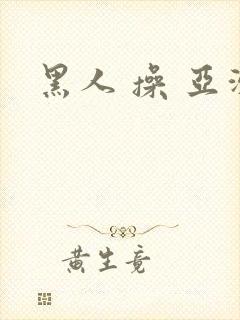 黑人 操 亞洲
黄生竟